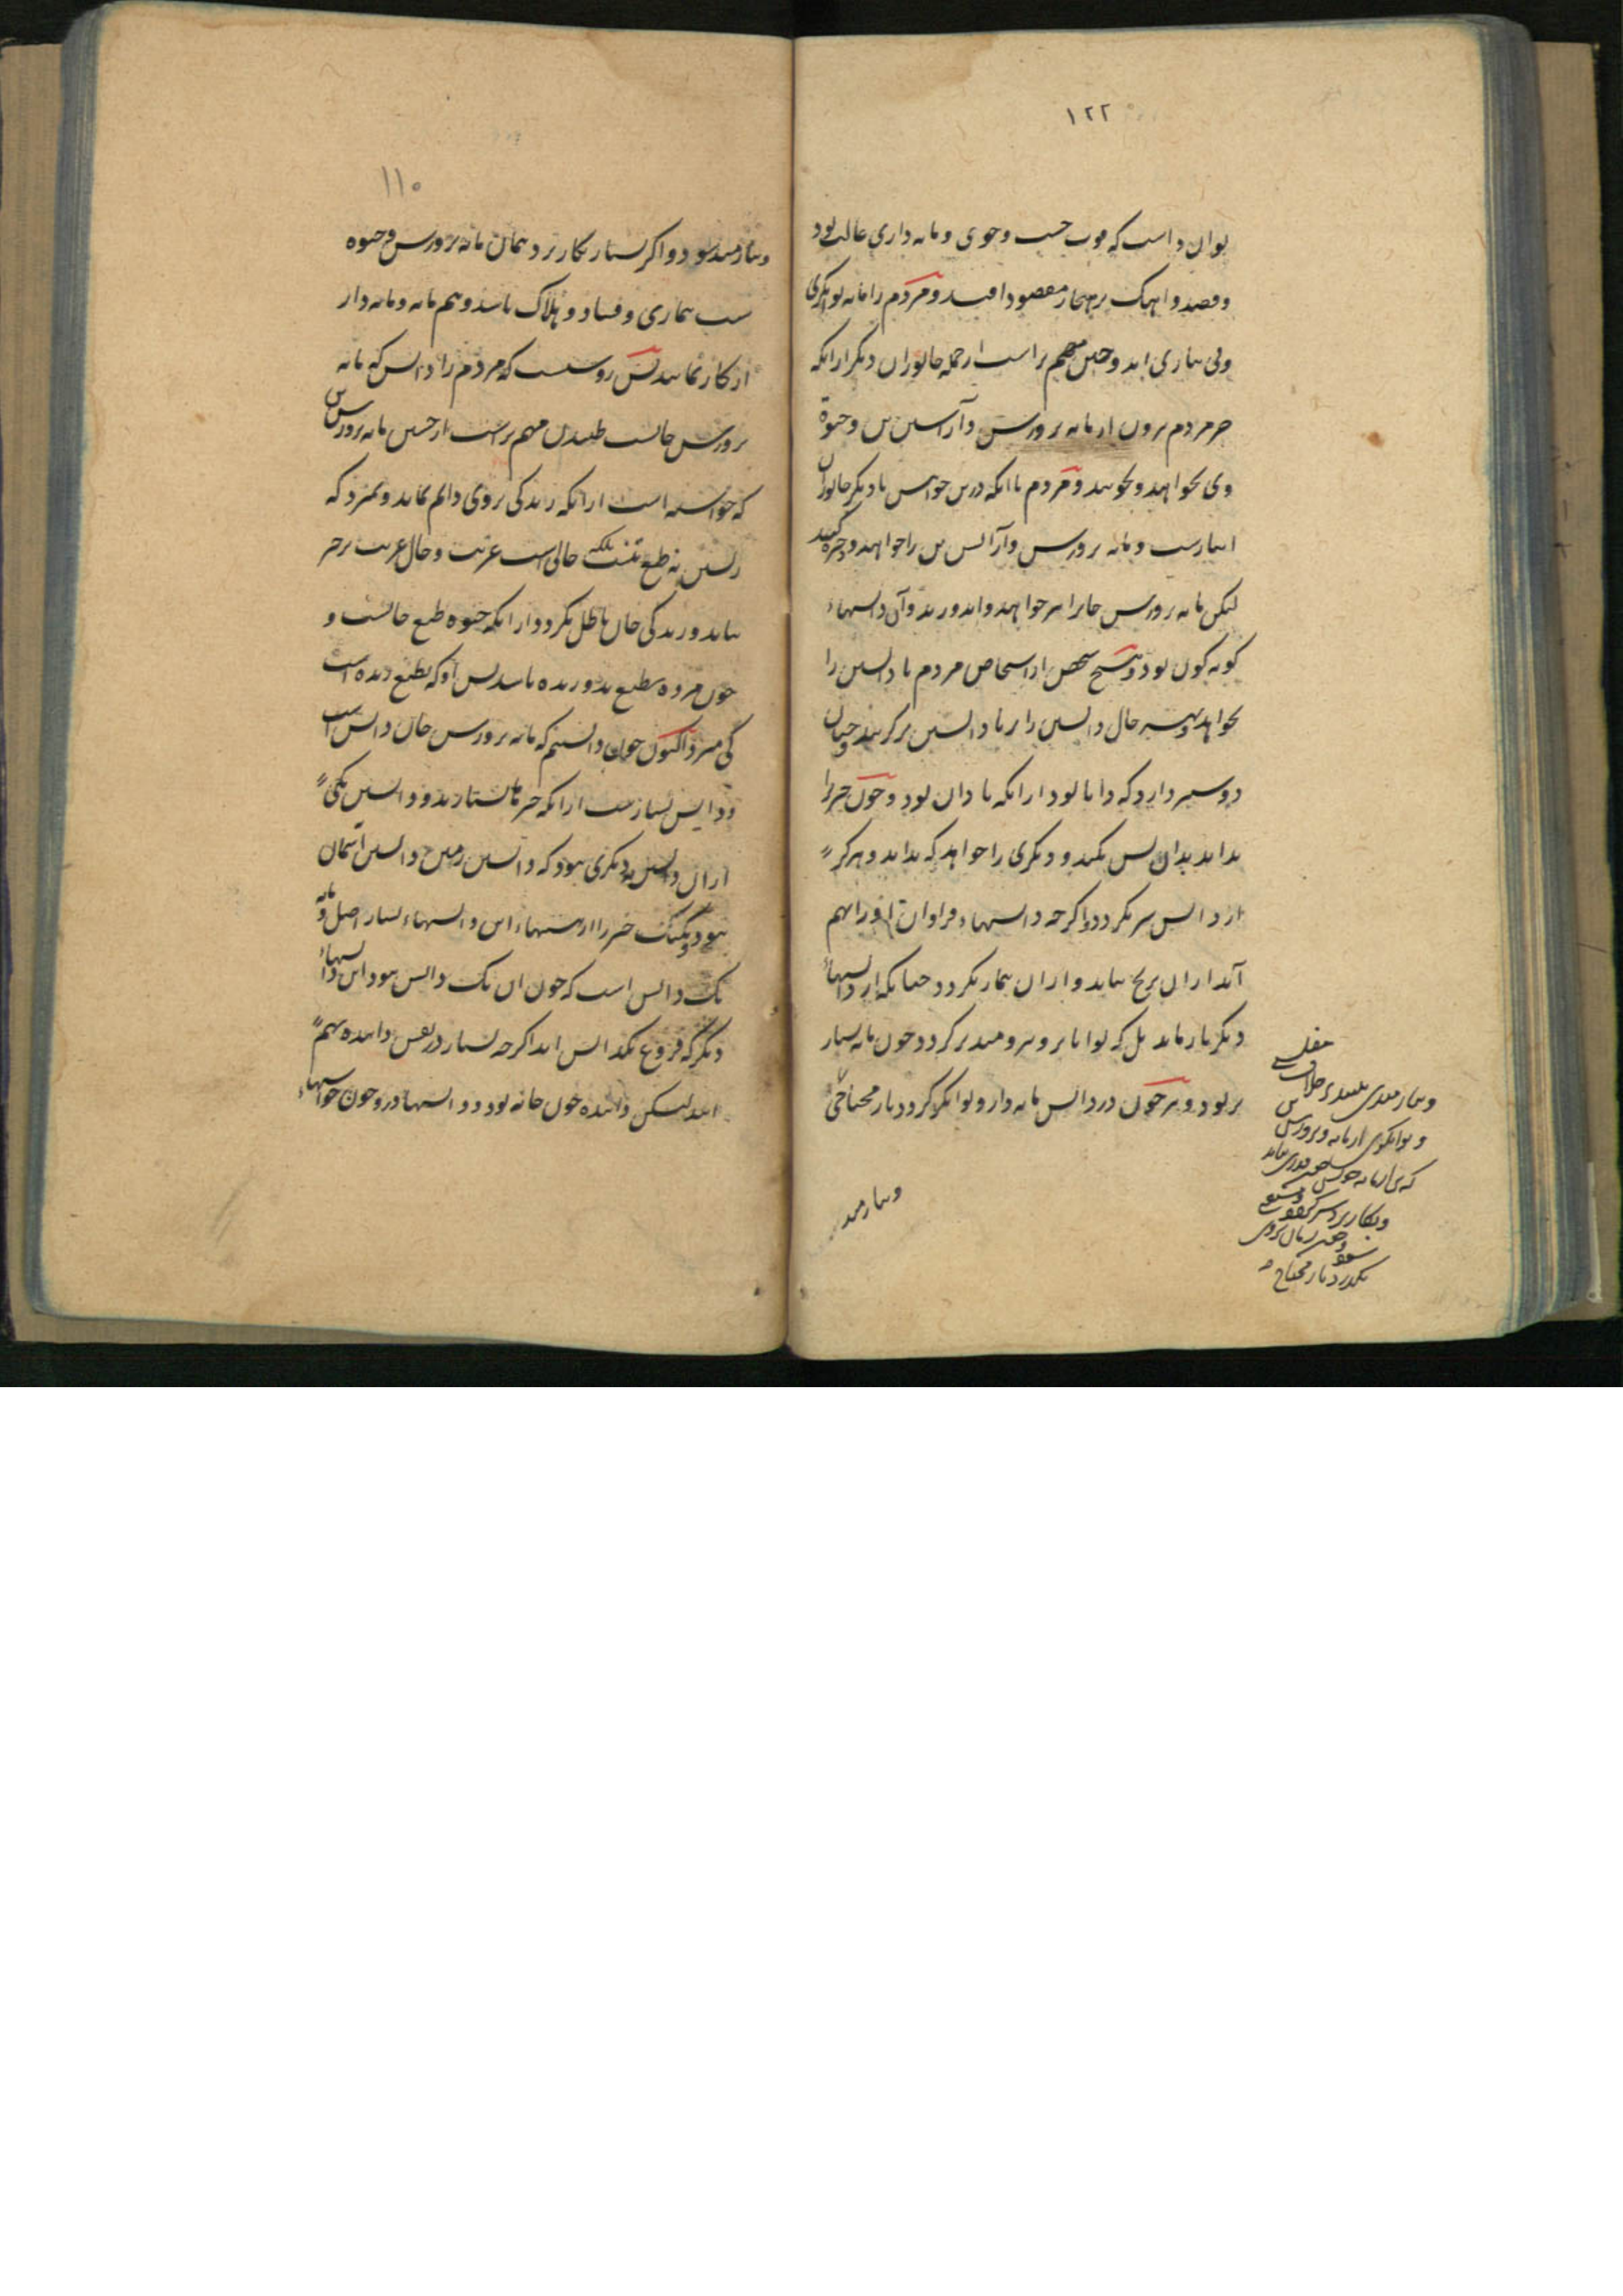 ۱۲۲
توان دانست که موجب جست و جوی و مایه داری غالب بود
و قصد و آهنگ بر هنجار مقصود افتد و مردم را مایه توانگری
و بی نیازی اند و جستن مهم تر است از جمله جانوران دیگر ازانکه
جز مردم برون از مایه پرورش و آرایش تن و حیوة
وی نخواهند و نجویند و مردم با انکه درین خواهش با دیگر جانوران
انبازست و مایه پرورش و آرایش تن را خواهند و ذخیره کنند
لیکن مایه پرورش جانرا نیز خواهند و اندوزند و آن دانشهاء
گونه گون بود و هیچ شخص از اشخاص مردم نادانستن را
نخواهد و همه حال دانستن را بر نادانستن برگزیند و چنان
دوستر دارد که دانا بود ازانکه نادان بود و چون چیزرا
بداند بدان بس نکند و دیگری را خواهد که بداند و هرگز
از دانش سیر نگردد و اگرچه دانشهاء فراوان او را بهم
آید ازان برنج نیاید و ازان بیمار نگردد چنانکه از دانشهاء
دیگر باز ماند بل که توانا تر و نیرومندتر گردد چون مایه بسیار
تر بود و نیز چون در دانش مایه دار و توانگر گردد باز محتاجی
و نیازمندی
و توانگری از مایه و پرورش
و بکار برد
نگذرد باز محتاج
و نیازمند
۱۱۰
و نیازمند بود و اگر بسیار بکار برد همان مایه پرورش و حیوه
سبب بیماری و فساد و هلاک باشد و هم مایه و مایه دار
از کار نمانند پس روشنست که مردم را دانش که مایه
پرورش جانست طلبیدن مهم تر است از جستن مایه پرورش تن
که خواسته است ازانکه زندگی بر وی دائم نماند و بمیرد که
زیستن نه طبع تنست بلکه حالی است غریب و حال غریب بر چیز
نپاید و زندگی جان باطل نگردد ازانکه حیوه طبع جانست و
چون مرده بطبع بدو زنده باشد پس او که بطبع زنده است
کی میرد اکنون چون دانستیم که مایه پرورش جان دانش است
و دانش بسیارست ازانکه چیزها بسیارند و دانستن یکی
ازان دانستن دیگری نبود که دانستن زمین دانستن آسمان
نبود و یک یک چیز را از هستیهاء این دانشهاء بسیار اصل و مایه
یک دانش است که چون ان یک دانش نبود این دانشهاء
دیگر که فروع یک دانش اند اگرچه بسیار در نفس داننده بهم
ایند لیکن داننده چون خانه بود و دانشها درو چون خواستهاء